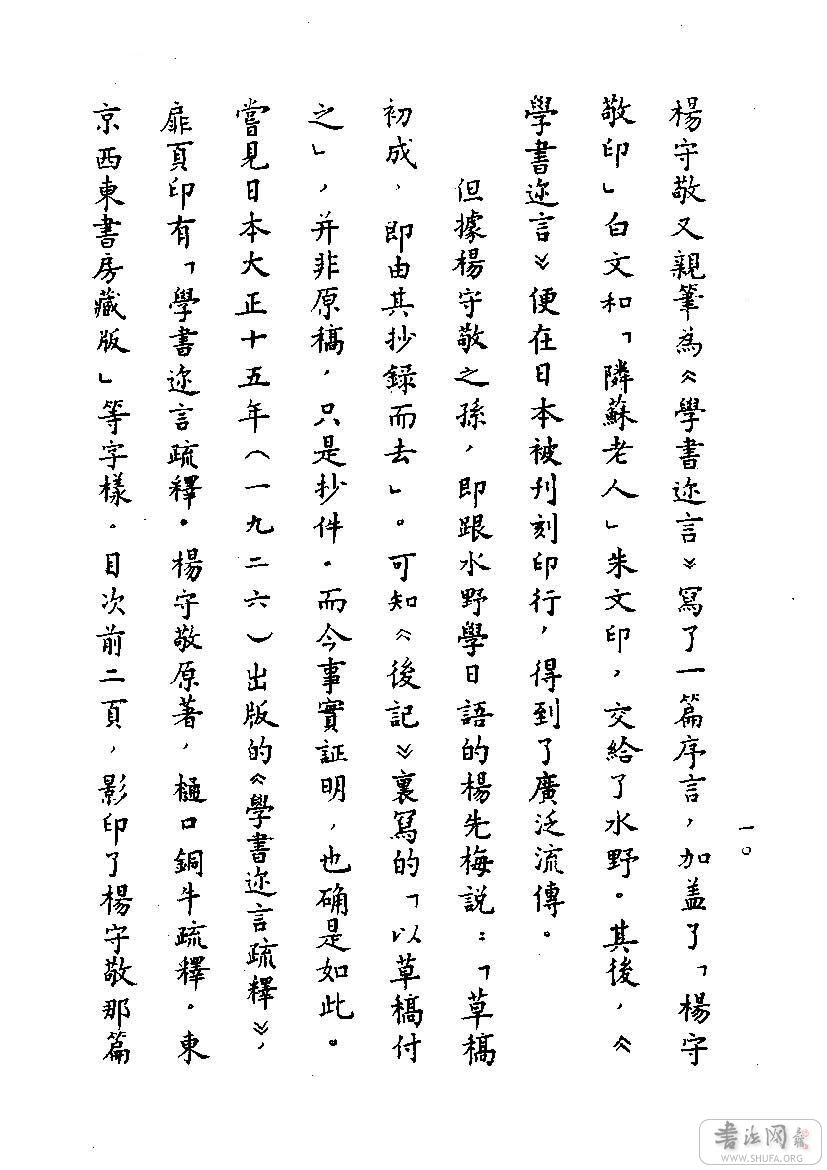 楊守敬又親筆為《學書迩言》寫了一篇序言，加盖了「楊守
敬印」白文和「隣蘇老人」朱文印，交給了水野。其後，《
學書迩言》便在日本被刋刻印行，得到了廣泛流傳。
但據楊守敬之孫，即跟水野學日語的楊先梅説：「草稿
初成，即由其抄錄而去」。可知《後記》裏寫的「以草稿付
之」，并非原稿，只是抄件。而今事實証明，也确是如此。
嘗見日本大正十五年（一九二六）出版的《學書迩言疏釋》，
扉頁印有「學書迩言疏釋。楊守敬原著，樋口銅牛疏釋。東
京西東書房藏版」等字樣。目次前二頁，影印了楊守敬那篇
一〇
書法网
WWW.SHUFA.ORG